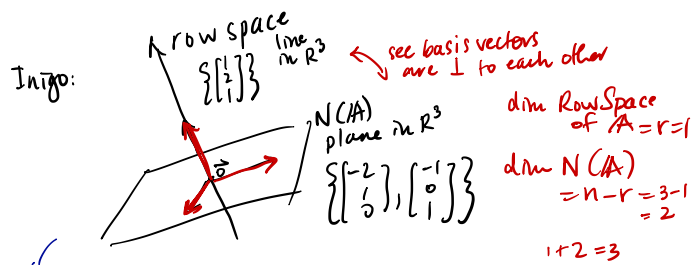 Inigo:
row space
{[1 2 1]} line in R³
see basis vectors
are ⊥ to each other
N(A)
plane in R³
{[-2 1 0], [-1 0 1]}
0⃗
dim RowSpace
of A = r = 1
dim N(A)
= n - r = 3-1
= 2
1 + 2 = 3